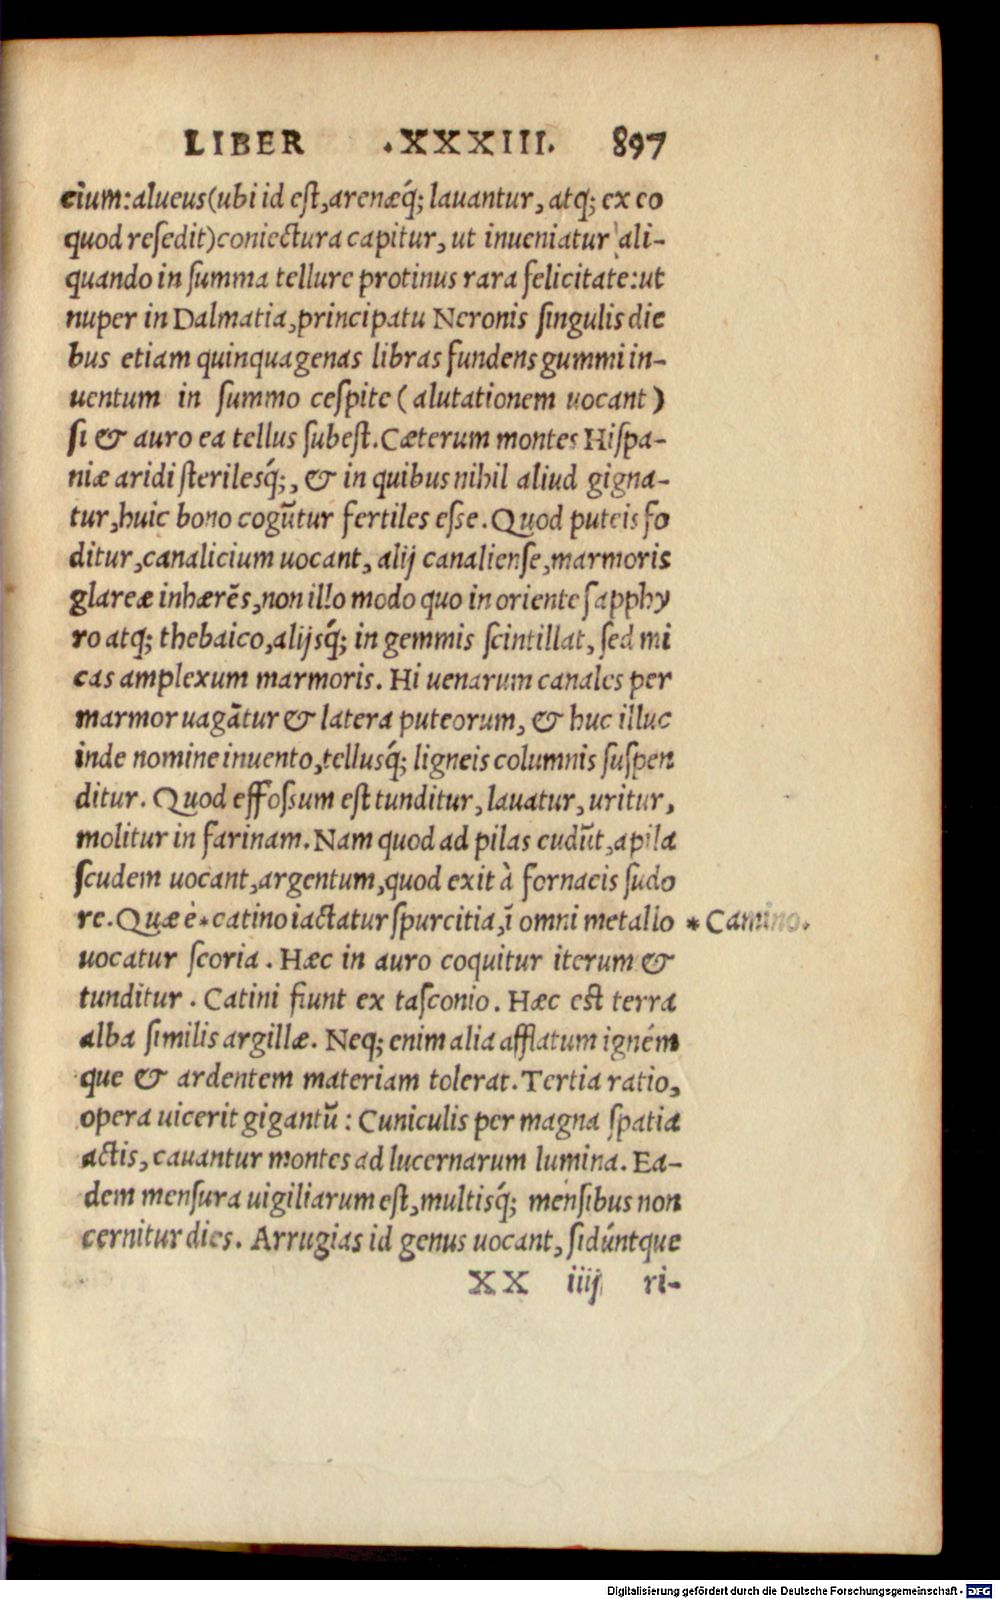 LIBER .XXXIII. 897
cium:alueus(ubi id est,arenæq́; lauantur, atq; ex eo
quod resedit)coniectura capitur, ut inueniatur ali-
quando in summa tellure protinus rara felicitate:ut
nuper in Dalmatia,principatu Neronis singulis die
bus etiam quinquagenas libras fundens gummi in-
uentum in summo cespite ( alutationem uocant )
si & auro ea tellus subest. Cæterum montes Hispa-
niæ aridi sterilesq́;, & in quibus nihil aliud gigna-
tur,huic bono cogũtur fertiles esse. Quod puteis fo
ditur,canalicium uocant, alij canaliense,marmoris
glareæ inhærẽs,non illo modo quo in oriente sapphy
ro atq; thebaico,alijsq́; in gemmis scintillat, sed mi
cas amplexum marmoris. Hi uenarum canales per
marmor uagãtur & latera puteorum, & huc illuc
inde nomine inuento,tellusq́; ligneis columnis suspen
ditur. Quod effossum est tunditur, lauatur, uritur,
molitur in farinam. Nam quod ad pilas cudũt,apila
scudem uocant,argentum,quod exit à fornacis sudo
re. Quæ è * catino iactatur spurcitia,ĩ omni metallo * Camino.
uocatur scoria . Hæc in auro coquitur iterum &
tunditur . Catini fiunt ex tasconio. Hæc est terra
alba similis argillæ. Neq; enim alia afflatum igném
que & ardentem materiam tolerat. Tertia ratio,
opera uicerit gigantũ : Cuniculis per magna spatia
actis, cauantur montes ad lucernarum lumina. Ea-
dem mensura uigiliarum est,multisq́; mensibus non
cernitur dies. Arrugias id genus uocant, sidúntque
XX iiij ri-
Digitalisierung gefördert durch die Deutsche Forschungsgemeinschaft - DFG